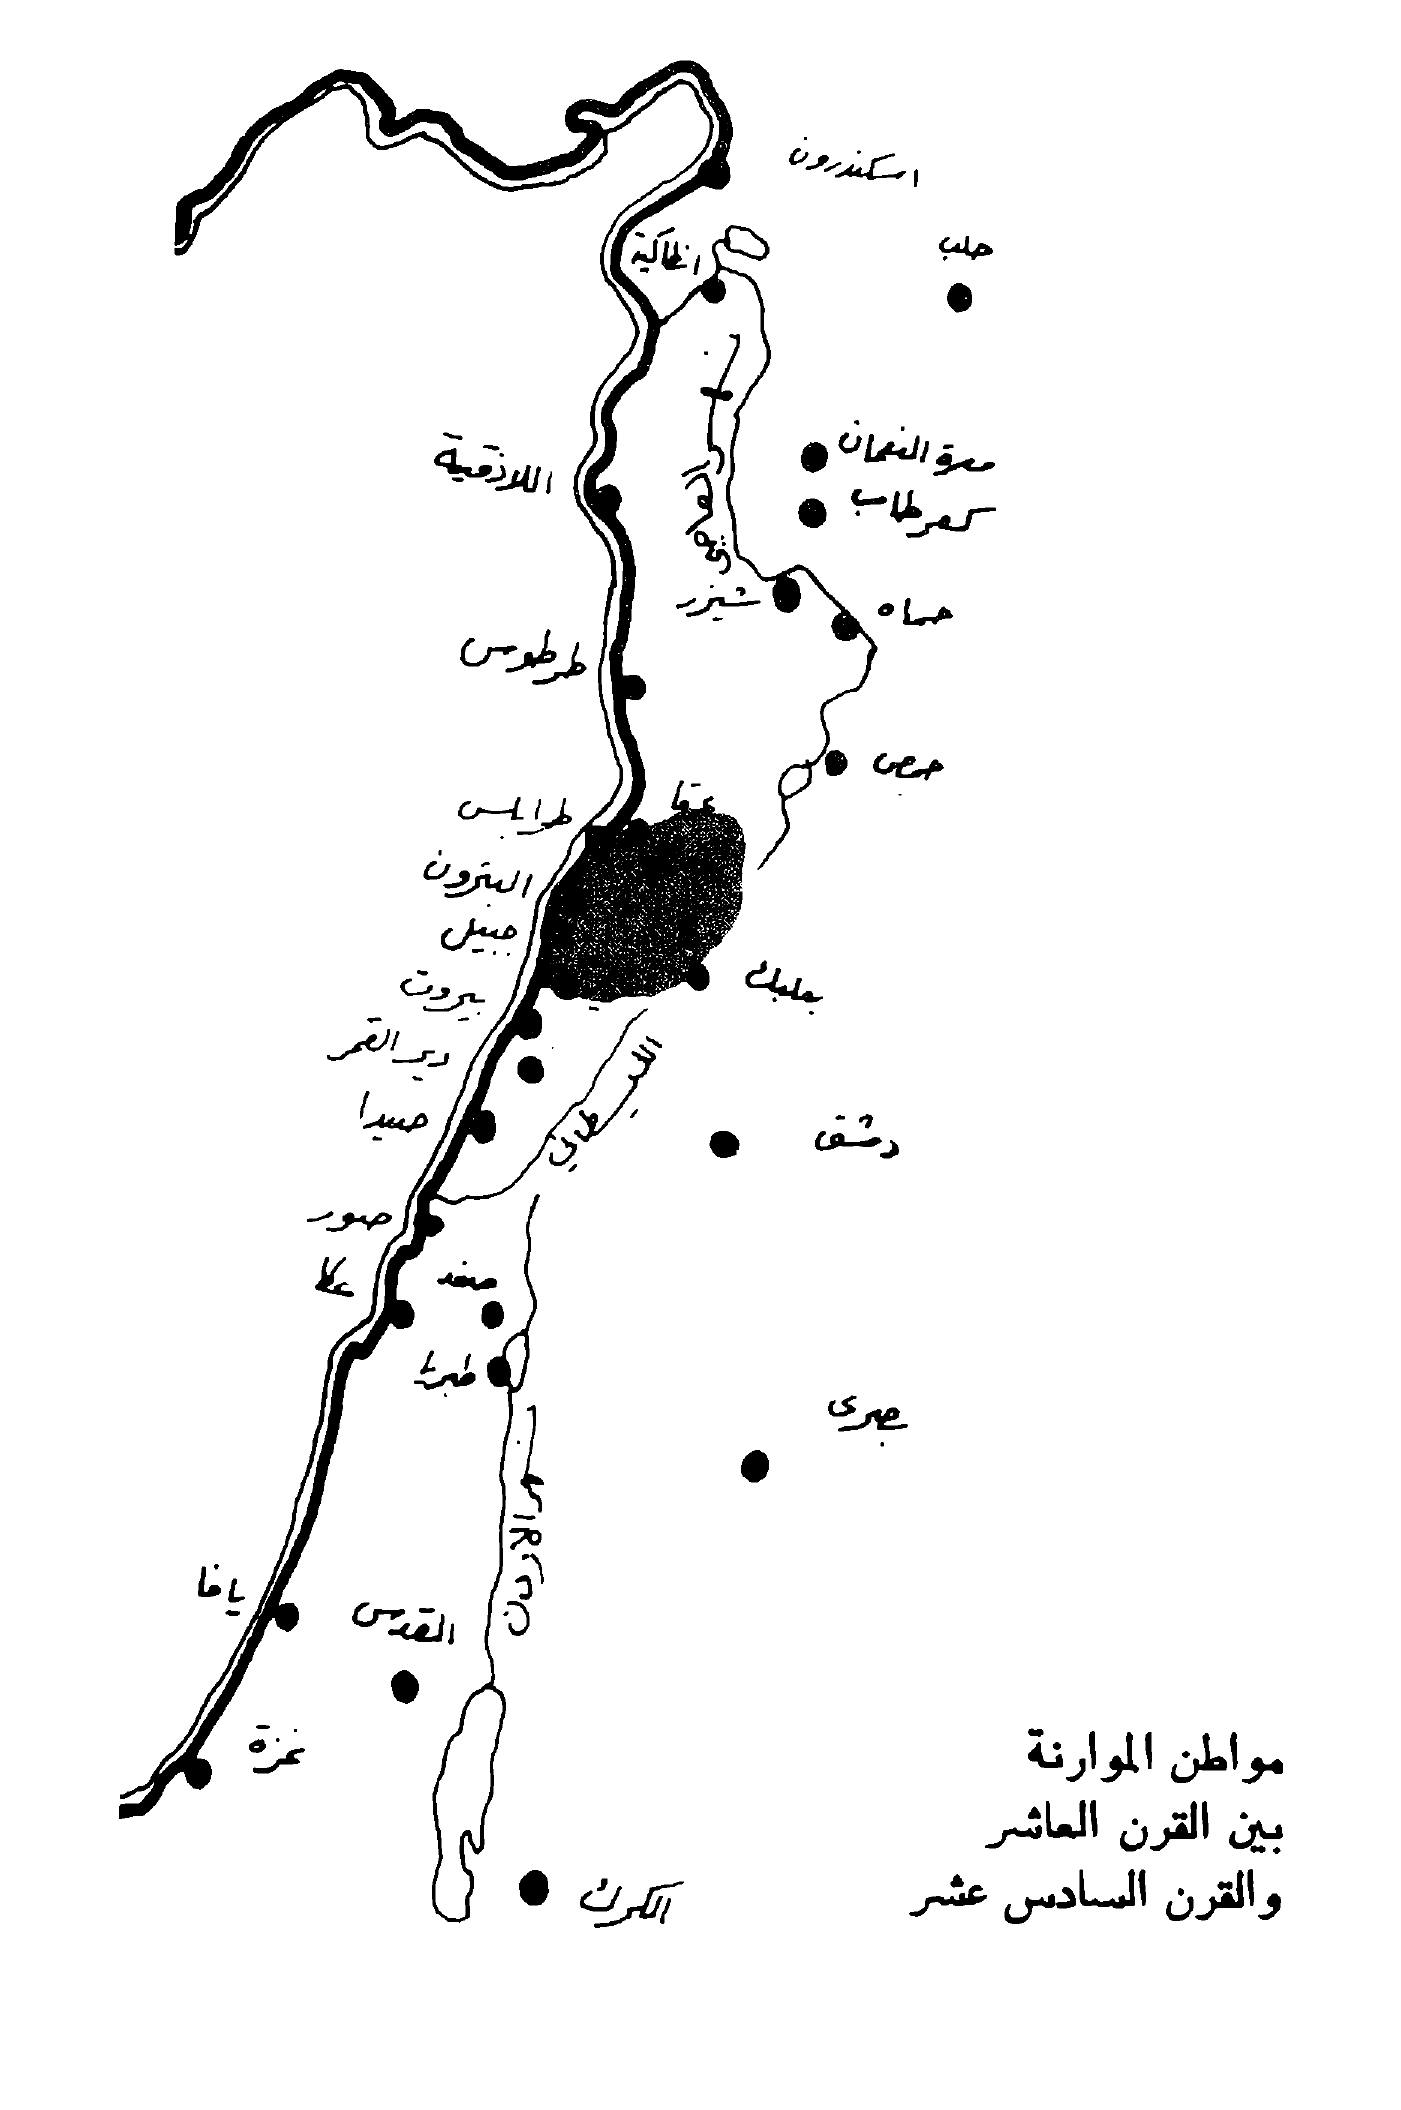 اسكندرون
حلب
انطاكية
معرة النعمان
كفر طاب
اللاذقية
شيزر
حماه
طرطوس
حمص
عرقا
طرابلس
البترون
جبيل
بعلبك
بيروت
دير القمر
الليطاني
صيدا
دمشق
صور
عكا
صفد
طبريا
بصرى
يافا
القدس
غزة
الكرك
مواطن الموارنة
بين القرن العاشر
والقرن السادس عشر